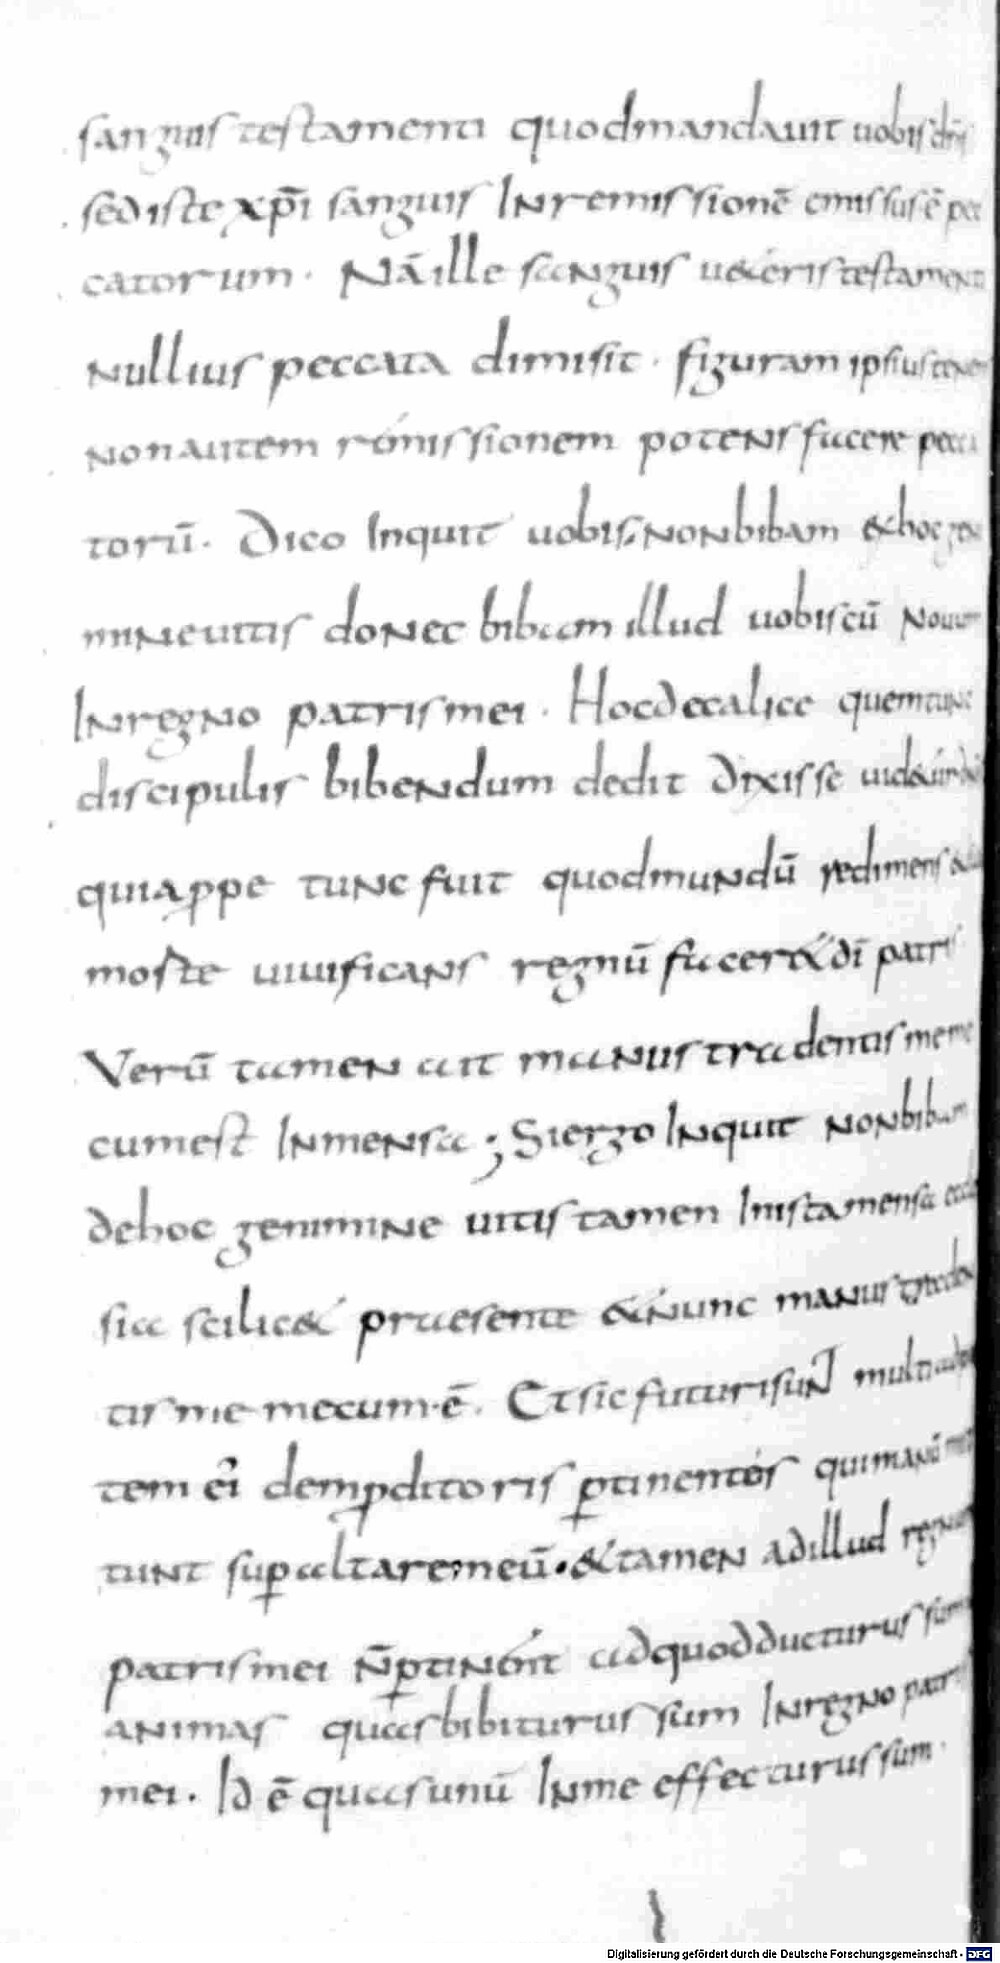 sanguis testamenti quod mandauit uobis d̄ns
sed iste xp̄i sanguis In remissionē emissus ē pec
catorum · Nā ille sanguis ueteris testamenti
Nullius peccata dimisit · figuram ipsius tenens
Non autem remissionem potens facere pecca
torū · Dico Inquit uobis; Non bibam ex hoc ge
mine uitis donec bibam illud uobiscū Nouum
In regno patris mei · Hoc de calice quem tunc
discipulis bibendum dedit dixisse uidetur
quia ppe tunc fuit quod mundū redimens
moste uiuificans regnū faceret dī patris
Verū tamen ait manus tradentis me me
cum est In mensa ; Si ergo Inquit Non bibam
de hoc genimine uitis tamen In ista mensa eccle
sia scilicet praesente et Nunc manus
tis me mecum · ē . Et sic futuri sunt multi
tem ei dem pditoris ptinentes qui manū mit
tunt sup altare meū · & tamen ad illud regnum
patris mei N̄ ptinent ad quod ducturus sum
animas quas bibiturus sum In regno patris
mei . Id ē quas unū In me effecturus sum ·
Digitalisierung gefördert durch die Deutsche Forschungsgemeinschaft - DFG